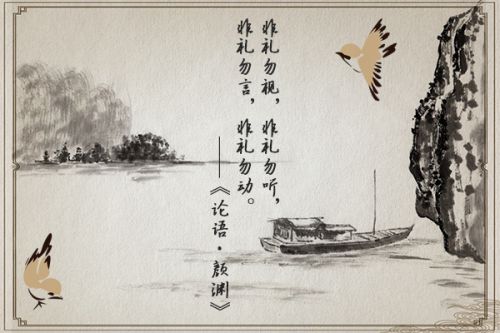 非礼勿视，非礼勿听，
非礼勿言，非礼勿动。
——《论语·颜渊》